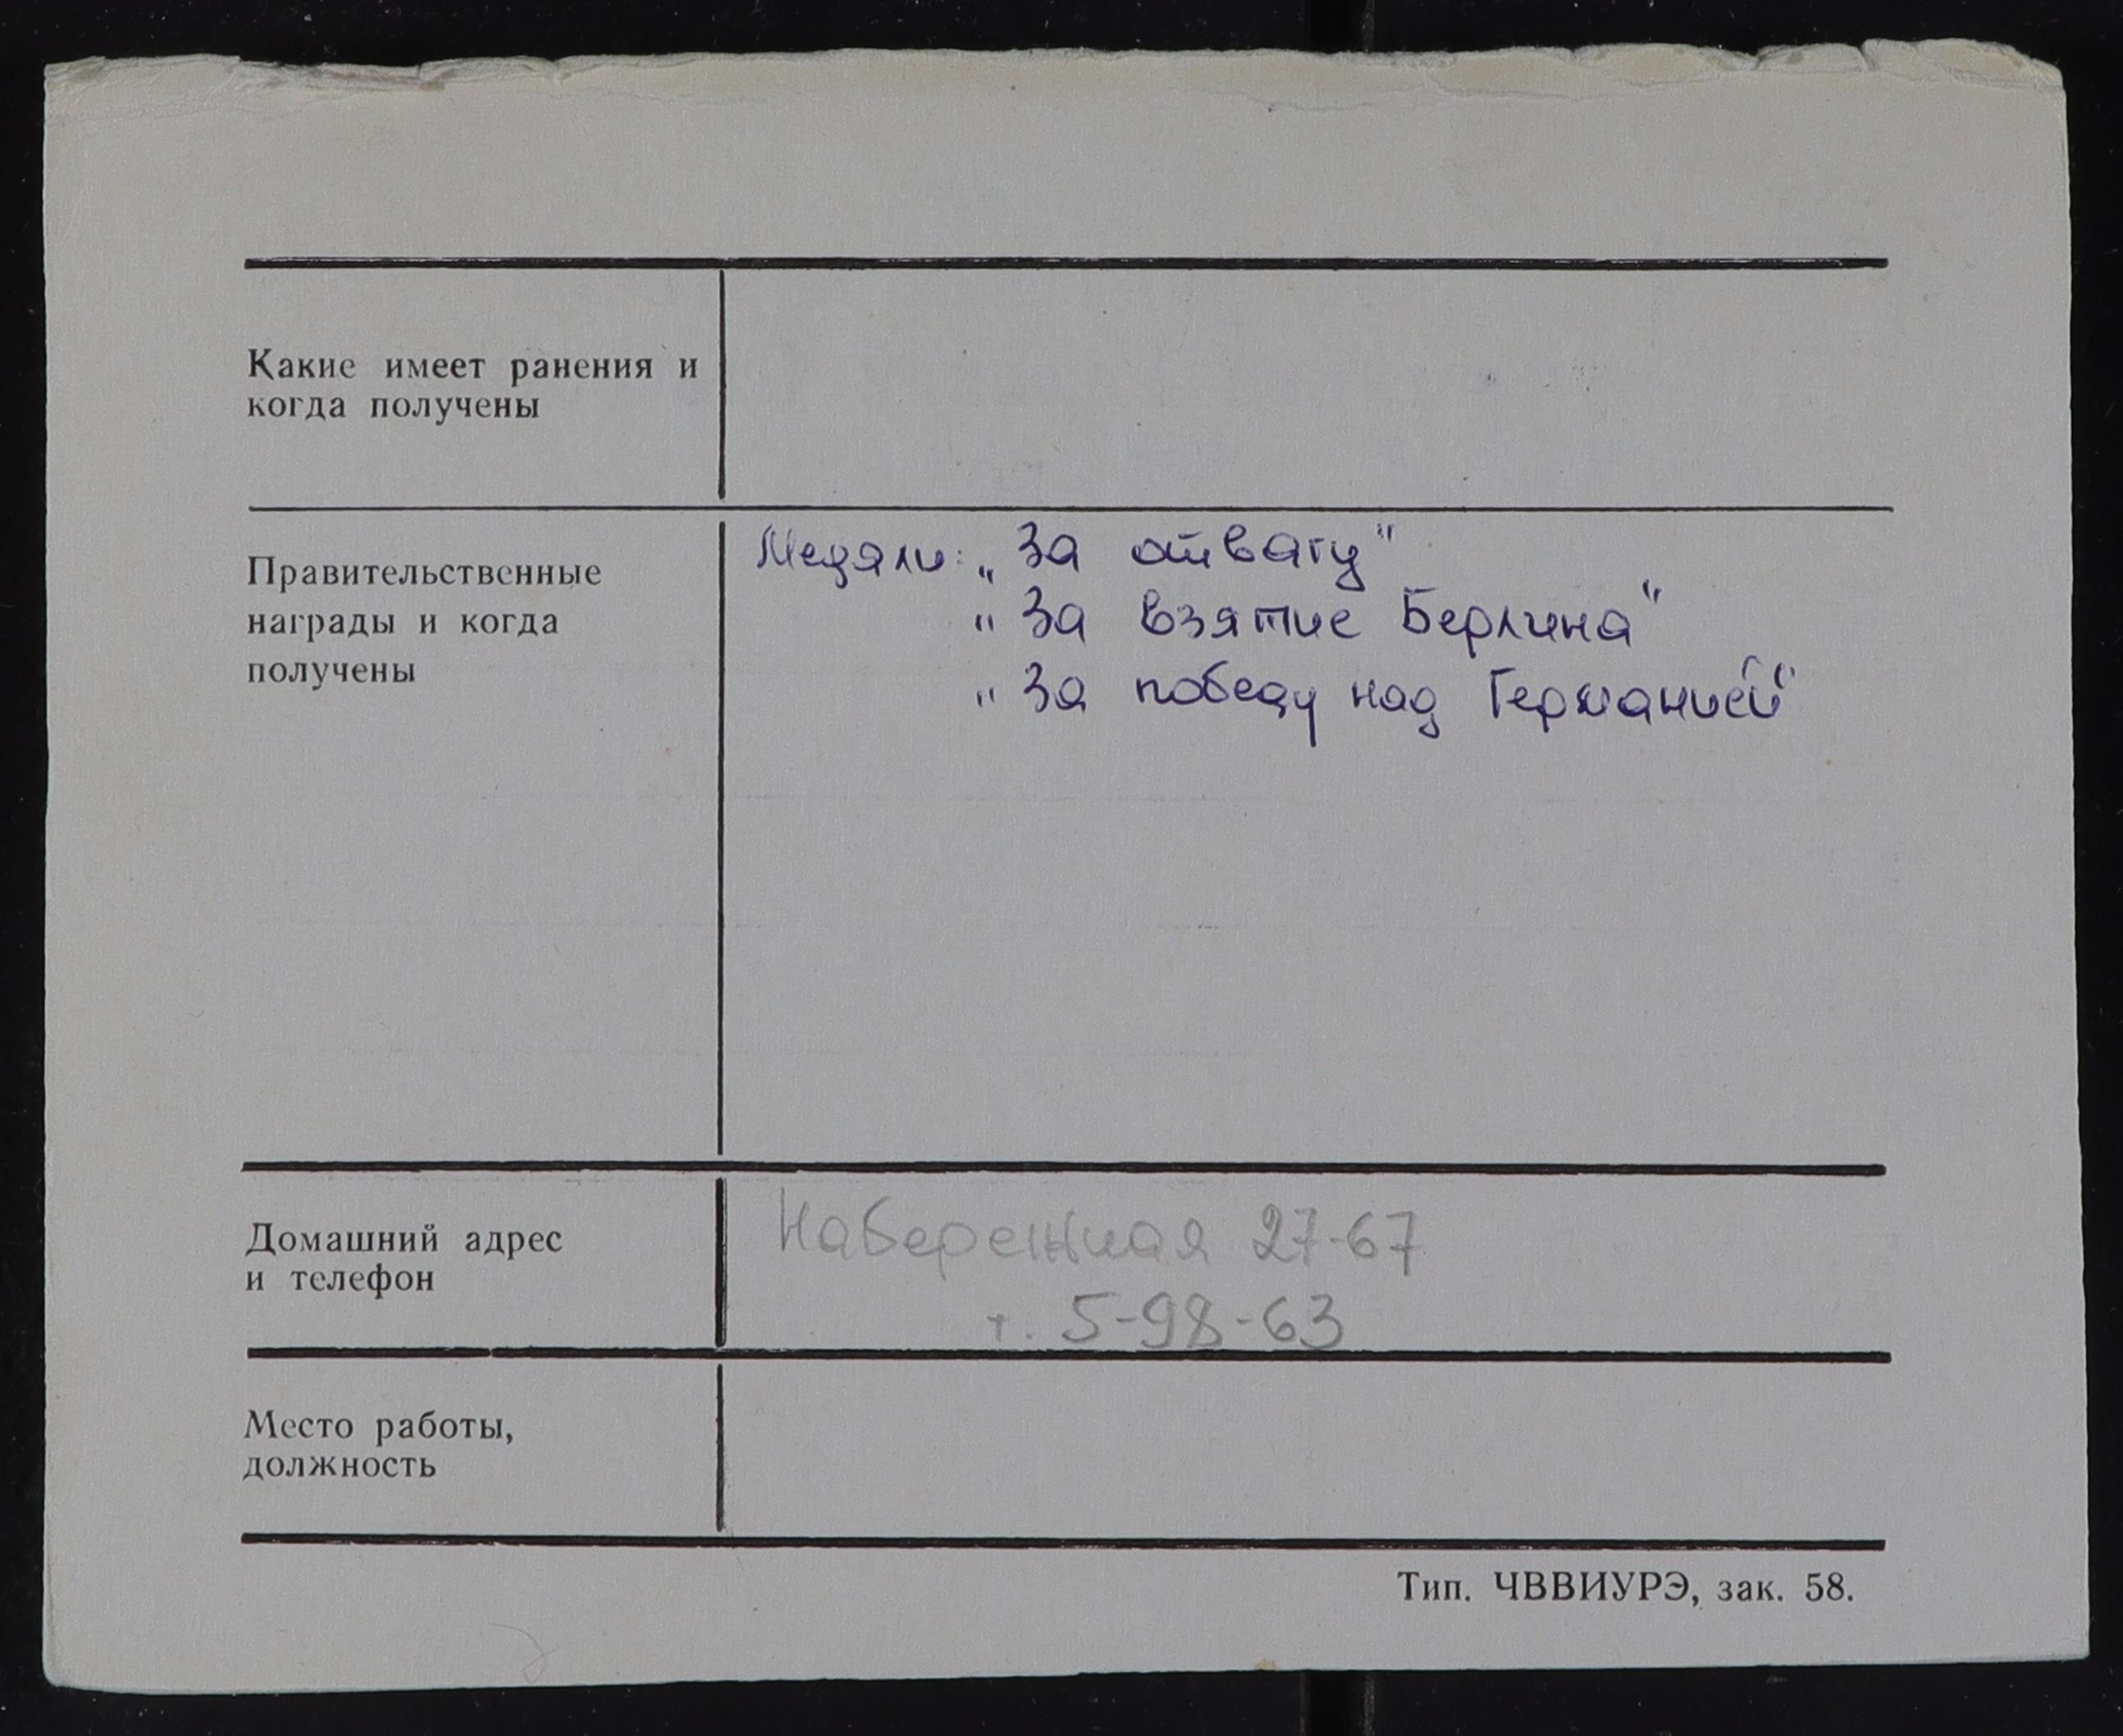 Какие имеет ранения и
когда получены
Правительственные
награды и когда
получены
Медали: „За отвагу"
"За взятие Берлина"
"За победу над Германией"
Домашний адрес
и телефон
Набережная 27-67
т. 5-98-63
Место работы,
должность
Тип. ЧВВИУРЭ, зак. 58.